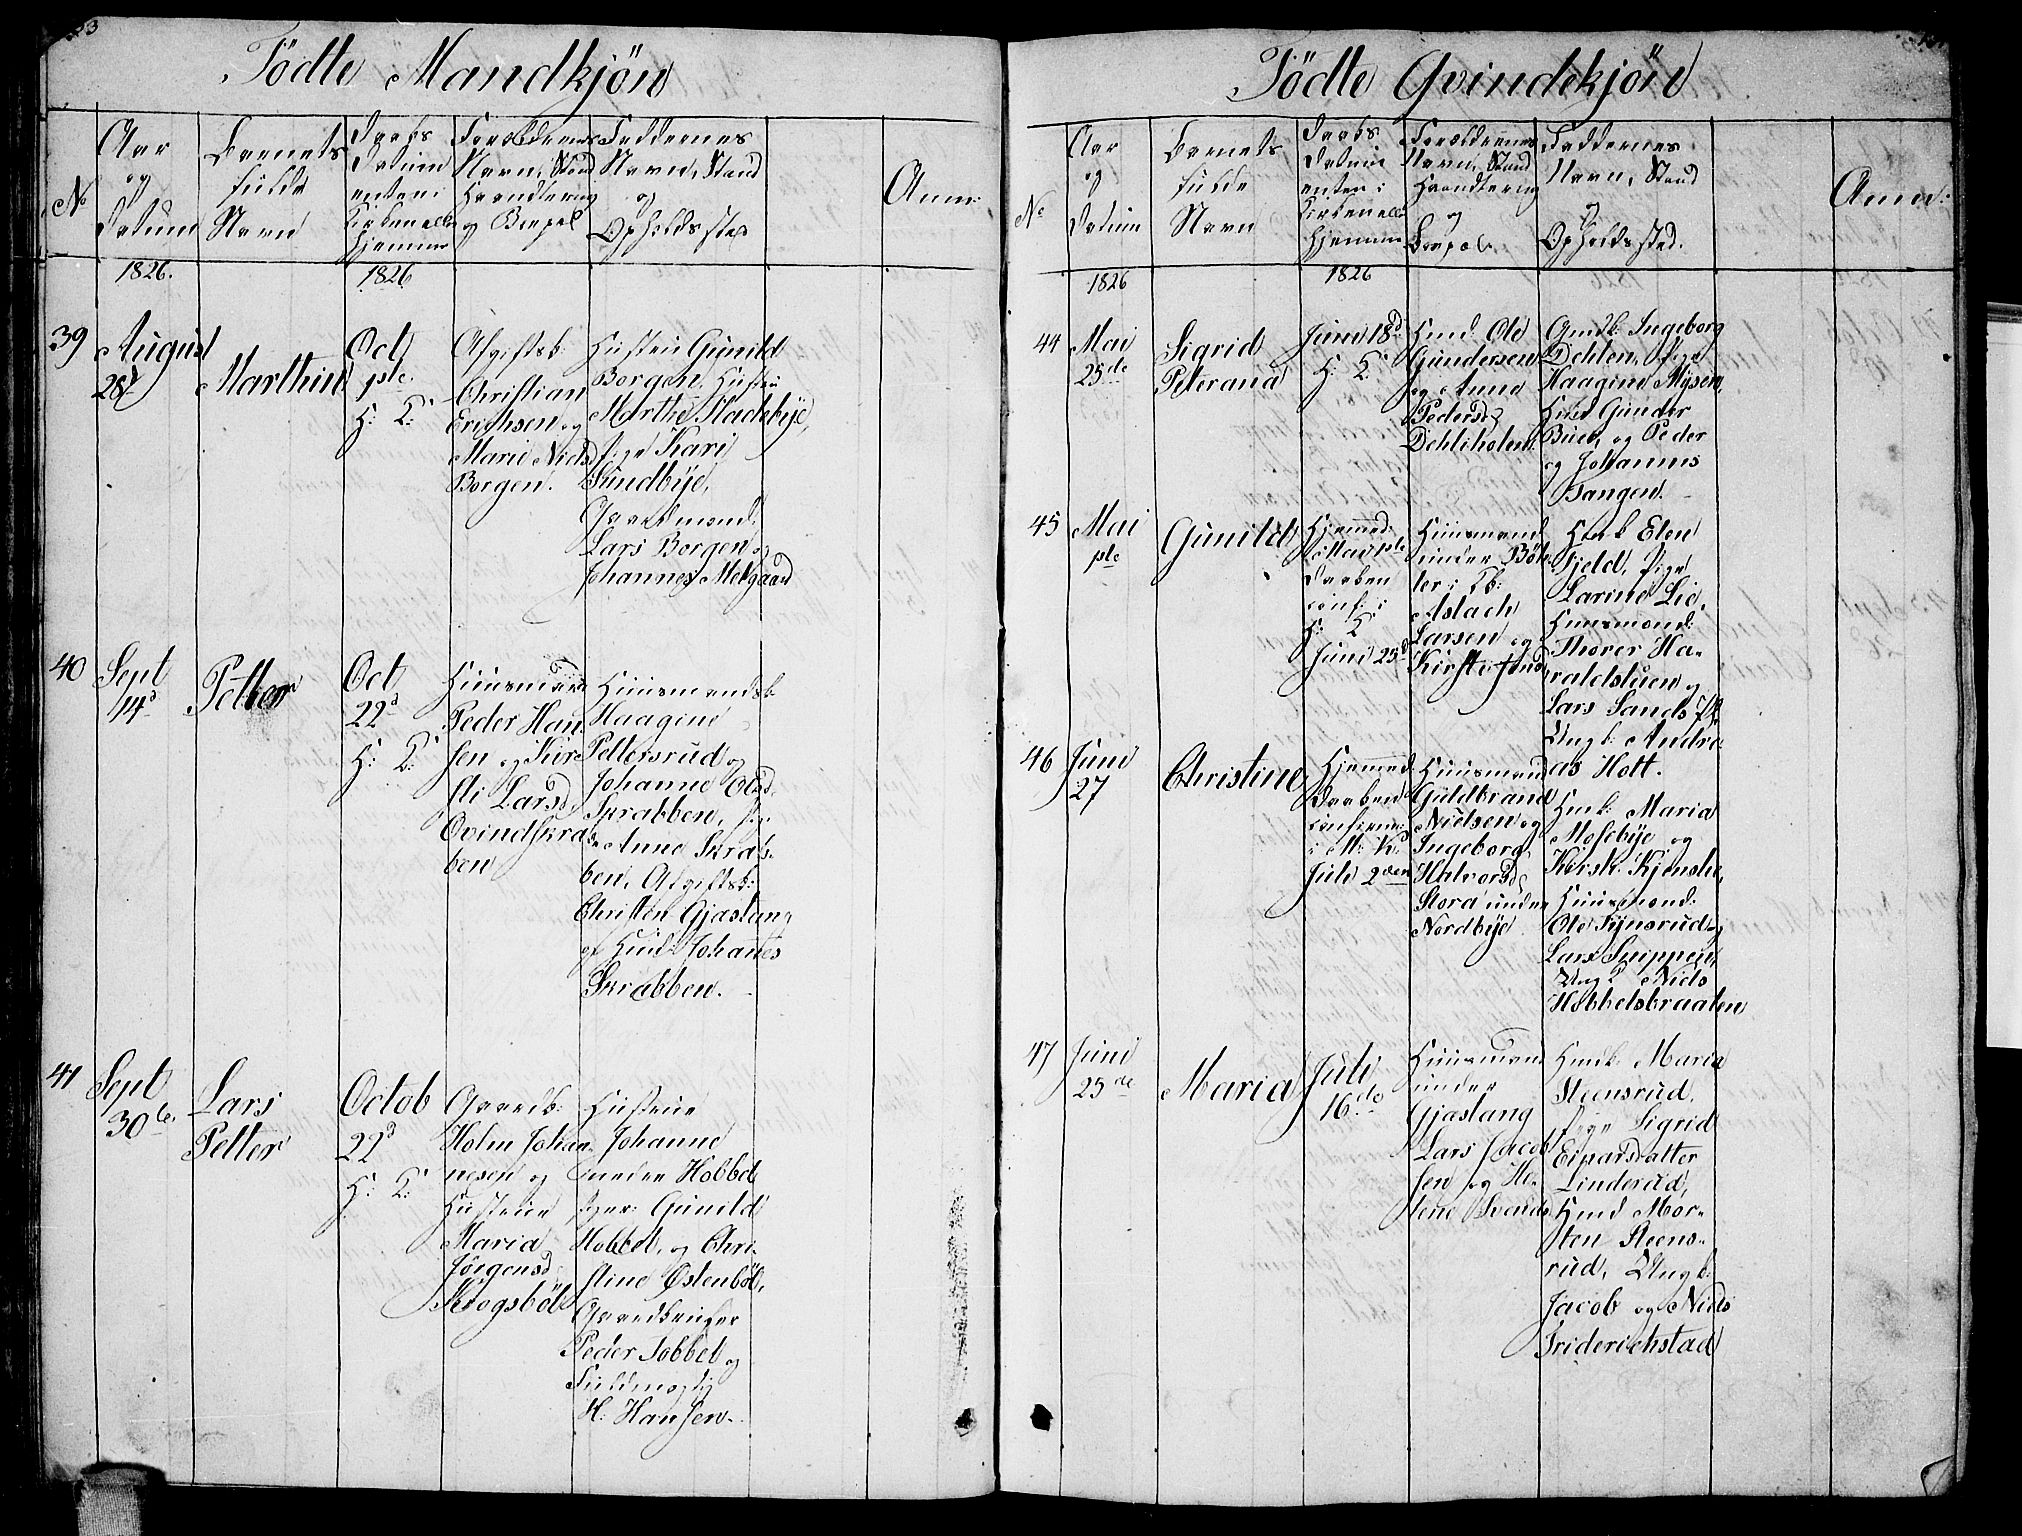 Födte Mandkjön
No
Aar
og
Datum
Barnets
fulde
Navn
Daabs
Datum
enten i
Kirken eller
Hjemme
Forældrenes
Navn, Stand
Haandtering
og Bopæl
Faddernes
Navn, Stand
og
Opholdssted
Anm:
1826.
1826
39
August
28d
Marthin
Oct
1ste
H: K:
Afgiftsb:
Christian
Erichsen og
Marie Nielsd
Borgen.
Hustrue Gunild
Borgen, Hustrue
Marthe Stadebye,
Pige Kari
Sundbye,
Gaardmænd:
Lars Borgen og
Johannes Melgaard
40
Sept
14d
Petter
Oct
22d
H: K:
Huusmand
Peder Han
sen og Kir
sti Larsd
Ovindskra
ben
Huusmandsk:
Haagine
Pettersrud og
Johanne Olsd
Skrabben, Pige
Anne Skrab
ben, Afgiftsb:
Christen Gjaslang
og Huusm: Johannes
Skrabben.
41
Sept
30te
Lars
Petter
Octob
22d
H: K:
Gaardb:
Holm Johan
nesen og
Hustrue
Maria
Jörgensd
Krogsböl
Hustrue
Johanne
nedre Hobbel
Piger: Gunild
Hobbel, og Chri
stine Ostenböl,
Gaardbruger
Peder Hobbel og
Fuldmægtig
H: Hansen.
Födte Qvindekjön
No
Aar
og
Datum
Barnets
fulde
Navn
Daabs
Datum
enten i
Kirken eller
Hjemme
Forældrenes
Navn, Stand
Haandtering
og
Bopæl.
Faddernes
Navn, Stand
og
Opholdssted.
Anm:
1826
1826
44
Mai
25de
Sigrid
Peterana
Juni 18d
H: K:
Huusmd: Ole
Gundersen
og Anne
Pedersd
Dehliholen
Gmdk: Ingeborg
Dehlen, Pige
Haagine Mysen,
Hmd Gunder
Buen, og Peder
og Johannes
Tangen.
45
Mai
1ste
Gunild
Hjemmed:
Mai 1ste
Daaben
conf: i
H: K:
Juni 25d
Huusmand
under Böh
ler
Aslach
Larsen og
Kirsti
Hmk Elen
Fjeld, Pige
Larine Lie,
Huusmænd:
Thorer Ha-
raldstuen og
Lars Sands
Ungk: Andre
as Hott.
46
Juni
27
Christine
Hjemmed
Daaben
conferm:
i M: K:
Juli 2den
Huusmand
Guldbrand
Nielsen og
Ingeborg
Halvorsd
Stora under
Nordbye
Hmk: Maria
Mosebye og
Huusmænd:
Ole Fynsrud og
Lars Snippen,
Ungk: Niels
Hobbelsbraaten
47
Juni
25de
Maria
Juli
16de
Huusmand
under
Gjaslang
Lars Jacob
sen og He-
lene Svends
Hmdk: Maria
Steensrud,
Pige Sigrid
Einarsdatter
Linderud,
Hmd Mor-
ten Steens-
rud, Ungk:
Jacob og Niels
Friderichstad